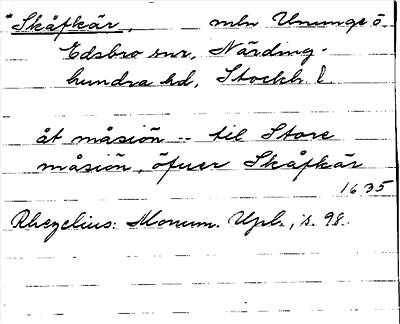 *Skåfkär, mln Ununge o.
Edsbro snr, Närding-
hundra hd, Stockh. l
åt måsiön -- til Store
måsiön, öfuer Skåfkär
1635
Rhezelius: Monum. Upl., s. 98.